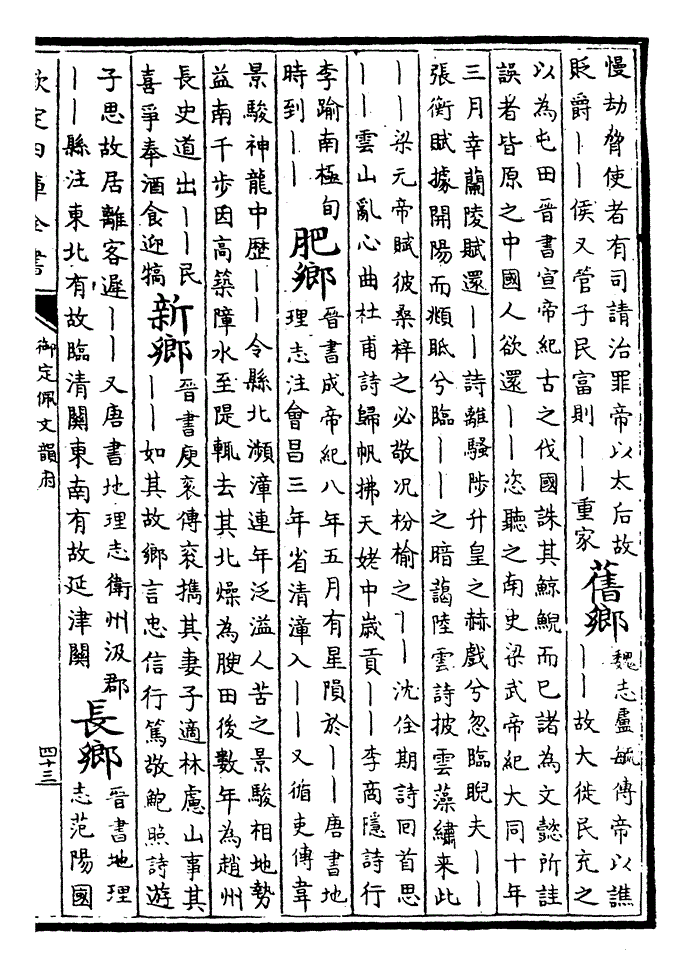 慢劫脅使者有司請治罪帝以太后故
貶爵——侯又管子民富則——重家
舊鄉
魏志盧毓傳帝以譙
——故大徙民充之
以為屯田晉書宣帝紀古之伐國誅其鯨鯢而已諸為文懿所詿
誤者皆原之中國人欲還——恣聽之南史梁武帝紀大同十年
三月幸蘭陵賦還——詩離騷陟升皇之赫戲兮忽臨睨夫——
張衡賦據開陽而頫眡兮臨——之暗藹陸雲詩披雲藻繡来此
——梁元帝賦彼桑梓之必敬况枌榆之——沈佺期詩回首思
——雲山亂心曲杜甫詩歸帆拂天姥中嵗貢——李商隱詩行
李踰南極旬
時到——
肥鄉
晉書成帝紀八年五月有星隕於——唐書地
理志注會昌三年省清漳入——又循吏傳韋
景駿神龍中歷——令縣北瀕漳連年泛溢人苦之景駿相地勢
益南千步因高築障水至隄輒去其北燥為腴田後數年為趙州
長史道出——民
喜爭奉酒食迎犒
新鄉
晉書庾衮傳衮攜其妻子適林慮山事其
——如其故鄉言忠信行篤敬鮑照詩遊
子思故居離客遲——又唐書地理志衛州汲郡
——縣注東北有故臨清關東南有故延津關
長鄉
晉書地理
志范陽國
欽定四庫全書
御定佩文韻府
四十三